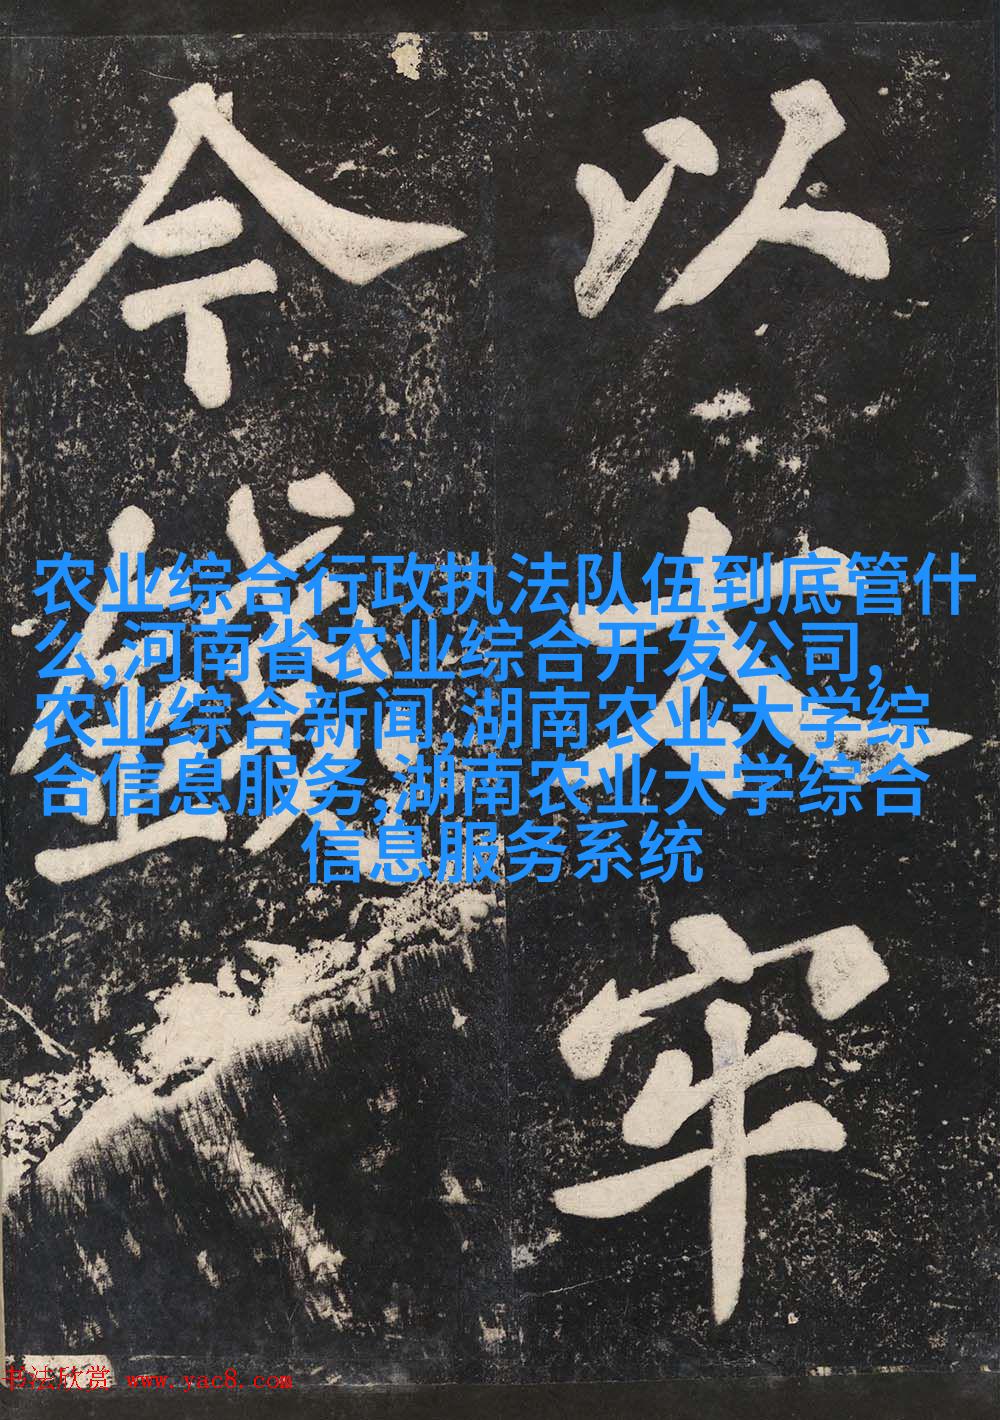 以
牢
今
农业综合行政执法队伍到底管什
么,河南省农业综合开发公司,
农业综合新闻,湖南农业大学综
合信息服务,湖南农业大学综合
信息服务系统
书法欣赏 www.yac8.com